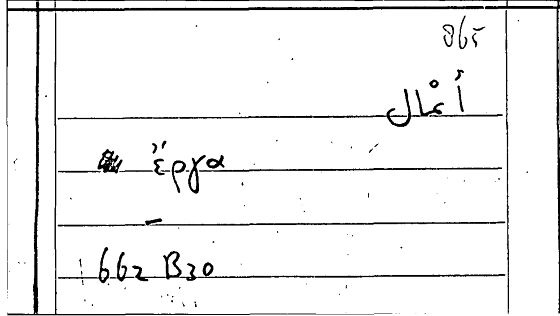 865
أعمال
ἔργα
662 B30